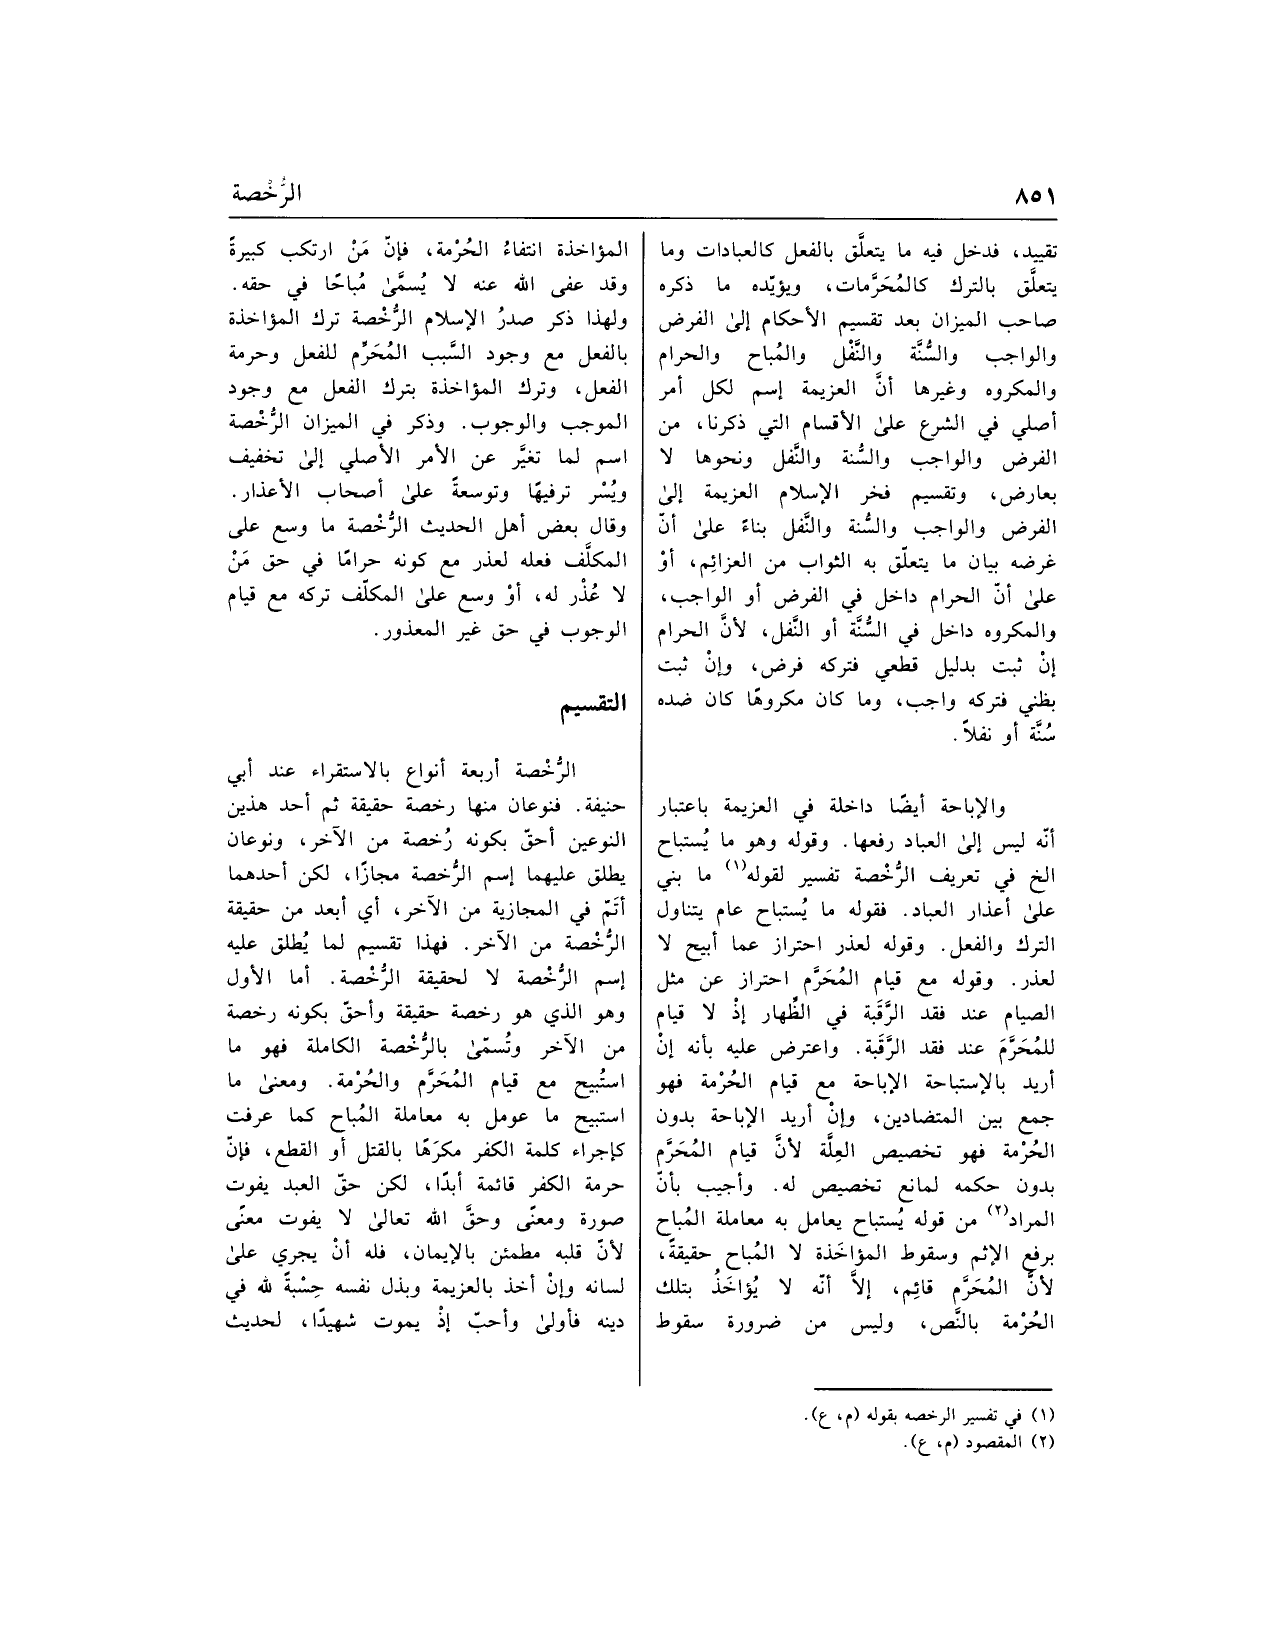 ٨٥١
الرُّخْصة
تقييد، فدخل فيه ما يتعلَّق بالفعل كالعبادات وما
يتعلَّق بالترك كالمُحَرَّمات، ويؤيّده ما ذكره
صاحب الميزان بعد تقسيم الأحكام إلىٰ الفرض
والواجب والسُّنَّة والنَّفْل والمُباح والحرام
والمكروه وغيرها أنَّ العزيمة إسم لكل أمر
أصلي في الشرع علىٰ الأقسام التي ذكرنا، من
الفرض والواجب والسُّنة والنَّفل ونحوها لا
بعارض، وتقسيم فخر الإسلام العزيمة إلىٰ
الفرض والواجب والسُّنة والنَّفل بناءً علىٰ أنّ
غرضه بيان ما يتعلّق به الثواب من العزائِم، أوْ
علىٰ أنّ الحرام داخل في الفرض أو الواجب،
والمكروه داخل في السُّنَّة أو النَّفل، لأنَّ الحرام
إنْ ثبت بدليل قطعي فتركه فرض، وإنْ ثبت
بظني فتركه واجب، وما كان مكروهًا كان ضده
سُنَّة أو نفلاً.
والإباحة أيضًا داخلة في العزيمة باعتبار
أنّه ليس إلىٰ العباد رفعها. وقوله وهو ما يُستباح
الخ في تعريف الرُّخْصة تفسير لقوله(١) ما بني
علىٰ أعذار العباد. فقوله ما يُستباح عام يتناول
الترك والفعل. وقوله لعذر احتراز عما أبيح لا
لعذر. وقوله مع قيام المُحَرَّم احتراز عن مثل
الصيام عند فقد الرَّقَبة في الظِّهار إذْ لا قيام
للمُحَرَّمَ عند فقد الرَّقَبة. واعترض عليه بأنه إنْ
أريد بالإستباحة الإباحة مع قيام الحُرْمة فهو
جمع بين المتضادين، وإنْ أريد الإباحة بدون
الحُرْمة فهو تخصيص العِلَّة لأنَّ قيام المُحَرَّم
بدون حكمه لمانع تخصيص له. وأجيب بأنّ
المراد(٢) من قوله يُستباح يعامل به معاملة المُباح
برفع الإثم وسقوط المؤاخَذة لا المُباح حقيقةً،
لأنَّ المُحَرَّم قائِم، إلاَّ أنّه لا يُؤاخَذُ بتلك
الحُرْمة بالنَّص، وليس من ضرورة سقوط
المؤاخذة انتفاءُ الحُرْمة، فإنّ مَنْ ارتكب كبيرةً
وقد عفى الله عنه لا يُسمَّىٰ مُباحًا في حقه.
ولهذا ذكر صدرُ الإسلام الرُّخْصة ترك المؤاخذة
بالفعل مع وجود السَّبب المُحَرِّم للفعل وحرمة
الفعل، وترك المؤاخذة بترك الفعل مع وجود
الموجب والوجوب. وذكر في الميزان الرُّخْصة
اسم لما تغيَّر عن الأمر الأصلي إلىٰ تخفيف
ويُسْر ترفيهًا وتوسعةً علىٰ أصحاب الأعذار.
وقال بعض أهل الحديث الرُّخصة ما وسع على
المكلَّف فعله لعذر مع كونه حرامًا في حق مَنْ
لا عُذْر له، أوْ وسع علىٰ المكلّف تركه مع قيام
الوجوب في حق غير المعذور.
التقسيم
الرُّخْصة أربعة أنواع بالاستقراء عند أبي
حنيفة. فنوعان منها رخصة حقيقة ثم أحد هذين
النوعين أحقّ بكونه رُخصة من الآخر، ونوعان
يطلق عليهما إسم الرُّخصة مجازًا، لكن أحدهما
أتَمّ في المجازية من الآخر، أي أبعد من حقيقة
الرُّخْصة من الآخر. فهذا تقسيم لما يُطلق عليه
إسم الرُّخصة لا لحقيقة الرُّخْصة. أما الأول
وهو الذي هو رخصة حقيقة وأحقّ بكونه رخصة
من الآخر وتُسمّىٰ بالرُّخْصة الكاملة فهو ما
استُبيح مع قيام المُحَرَّم والحُرْمة. ومعنىٰ ما
استبيح ما عومل به معاملة المُباح كما عرفت
كإجراء كلمة الكفر مكرَهًا بالقتل أو القطع، فإنّ
حرمة الكفر قائمة أبدًا، لكن حقّ العبد يفوت
صورة ومعنّى وحقَّ الله تعالىٰ لا يفوت معنّى
لأنّ قلبه مطمئن بالإيمان، فله أنْ يجري علىٰ
لسانه وإنْ أخذ بالعزيمة وبذل نفسه حِسْبةً لله في
دينه فأولىٰ وأحبّ إذْ يموت شهيدًا، لحديث
(١) في تفسير الرخصه بقوله (م، ع).
(٢) المقصود (م، ع).